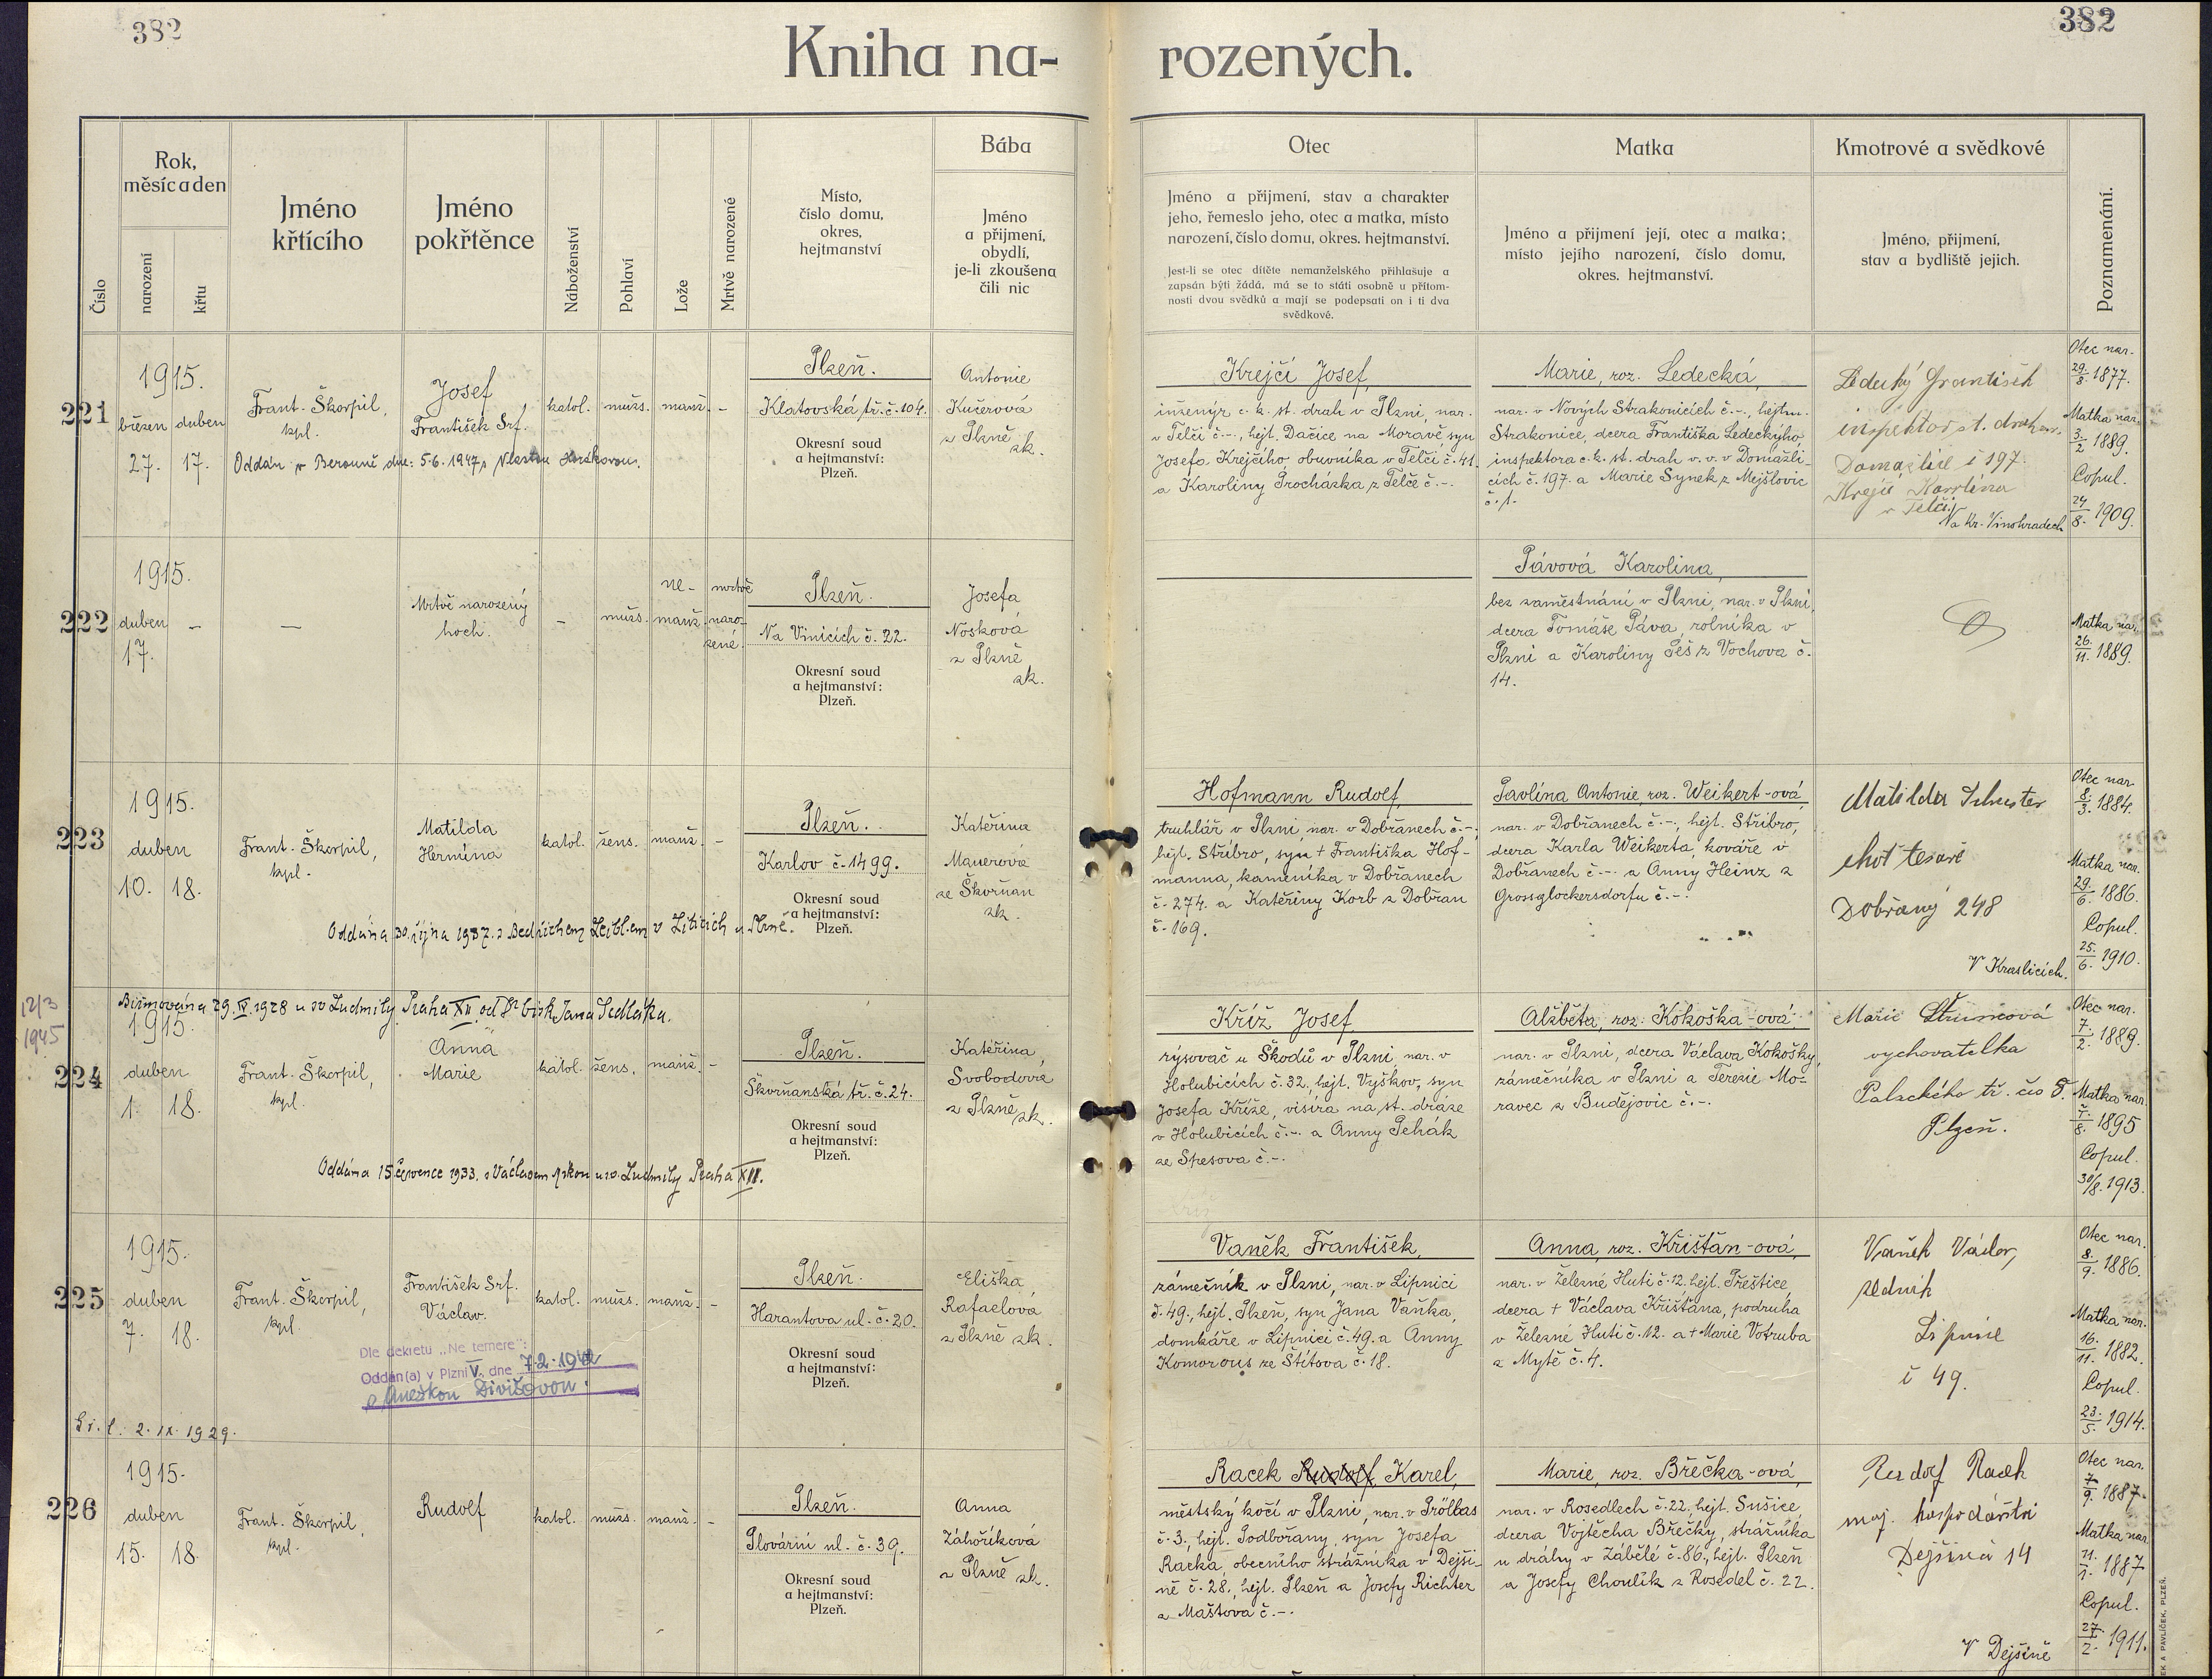 382
382
Kniha na-
rozených.
Číslo
Rok,
měsíc a den
narození
křtu
Jméno
křtícího
Jméno
pokřtěnce
Náboženství
Pohlaví
Lože
Mrtvě narozené
Místo,
číslo domu,
okres,
hejtmanství
Bába
Jméno
a přijmení,
obydlí,
je-li zkoušena
čili nic
Otec
Jméno a přijmení, stav a charakter
jeho, řemeslo jeho, otec a matka, místo
narození, číslo domu, okres. hejtmanství.
Jest-li se otec dítěte nemanželského přihlašuje a
zapsán býti žádá, má se to státi osobně u přítom-
nosti dvou svědků a mají se podepsati on i ti dva
svědkové.
Matka
Jméno a přijmení její, otec a matka;
místo jejího narození, číslo domu,
okres. hejtmanství.
Kmotrové a svědkové
Jméno, přijmení,
stav a bydliště jejich.
Poznamenání.
221
1915.
březen duben
27. 17.
Frant. Škorpil,
kpl.
Josef
František Srf.
katol.
mužs.
manž.
-
Oddán v Berouně dne: 5.6.1947 s Vlastou Horákovou.
Plzeň.
Klatovská tř. č. 104.
Okresní soud
a hejtmanství:
Plzeň.
Antonie
Kučerová
z Plzně
zk.
Krejčí Josef,
inženýr c. k. st. drah v Plzni, nar.
v Telči č. -., hejt. Dačice na Moravě, syn
Josefa Krejčího, obuvníka v Telči č. 41.
a Karoliny Procházka z Telče č. -.
Marie, roz. Ledecká,
nar. v Nových Strakonicích č. -., hejtm.
Strakonice, dcera Františka Ledeckýho,
inspektora c. k. st. drah v. v. v Domažli-
cích č. 197. a Marie Synek z Mejšlovic
č. 1.
Ledecký František
inspektor st. drah
Domažlice č 197.
Krejčí Karolina
v Telči
Na Kr. Vinohradech
Otec nar.
29./8. 1877.
Matka nar.
3./2. 1889.
Copul.
24/8. 1909.
222
1915.
duben
17.
-
—
Mrtvě narozený
hoch.
-
mužs.
ne-
manž.
mrtvě
naro-
zené.
Plzeň.
Na Vinicích č. 22.
Okresní soud
a hejtmanství:
Plzeň.
Josefa
Nosková
z Plzně
zk.
Pávová Karolina,
bez zaměstnání v Plzni, nar. v Plzni,
dcera Tomáše Páva, rolníka v
Plzni a Karoliny Peš z Vochova č.
14.
Matka nar.
26./11. 1889.
223
1915.
duben
10. 18.
Frant. Škorpil,
kpl.
Matilda
Hermína
katol.
žens.
manž.
-
Oddána 30. října 1937. s Bedřichem Leiblem v Liticích u Plzně.
Plzeň.
Karlov č. 1499.
Okresní soud
a hejtmanství:
Plzeň.
Kateřina
Mauerová
ze Škvrňan
zk.
Hofmann Rudolf,
truhlář v Plzni, nar. v Dobřanech č. -.,
hejt. Stříbro, syn † Františka Hof-
manna, kameníka v Dobřanech
č. 274. a Kateřiny Korb z Dobřan
č. 169.
Pavlína Antonie, roz. Weikert-ová,
nar. v Dobřanech č. -., hejt. Stříbro,
dcera Karla Weikerta, kováře v
Dobřanech č. -. a Anny Heinz z
Grossglockersdorfu č. -.
Matilda Schuster
choť tesaře
Dobřany 248
V Kraslicích.
Otec nar.
8./3. 1884.
Matka nar.
29./6. 1886.
Copul.
25./6. 1910.
12/3
1945
Biřmována 29. IV. 1928 u sv. Ludmily Praha XII. od Dr bisk. Jana Sedláka.
224
1915.
duben
1. 18.
Frant. Škorpil,
kpl.
Anna
Marie
katol.
žens.
manž.
-
Oddána 15 července 1933. s Václavem u sv. Ludmily Praha XII.
Plzeň.
Škvrňanská tř. č. 24.
Okresní soud
a hejtmanství:
Plzeň.
Kateřina
Svobodová
z Plzně
zk.
Kříž Josef,
rýsovač u Škodů v Plzni, nar. v
Holubicích č. 32., hejt. Vyškov, syn
Josefa Kříže, visíra na st. dráze
v Holubicích č. -. a Anny Pehák
ze Spešova č. -.
Alžběta, roz. Kokoška-ová,
nar. v Plzni, dcera Václava Kokošky,
zámečníka v Plzni a Terezie Mo-
ravec z Budějovic č. -.
Marie
vychovatelka
Palackého tř. čís 8.
Plzeň.
Otec nar.
7./2. 1889.
Matka nar.
7./8. 1895
Copul.
30/8. 1913.
225
1915.
duben
7. 18.
Frant. Škorpil,
kpl.
František Srf.
Václav.
katol.
mužs.
manž.
-
Dle dekretu „Ne temere":
Oddán(a) v Plzni V. dne 7.2.1942
s Anežkou Divišovou.
2. IX. 1929.
Plzeň.
Harantova ul. č. 20.
Okresní soud
a hejtmanství:
Plzeň.
Eliška
Rafaelová
z Plzně zk.
Vaněk František,
zámečník v Plzni, nar. v Lipnici
č. 49., hejt. Plzeň, syn Jana Vaňka,
domkáře v Lipnici č. 49. a Anny
Komorous ze Štítova č. 18.
Anna, roz. Křišťan-ová,
nar. v Železné Huti č. 12. hejt. Přeštice,
dcera † Václava Křišťana, podruha
v Železné Huti č. 12. a † Marie Votruba
z Mytě č. 4.
Vaněk Václav,
zedník
Lipnice
č 49.
Otec nar.
8./9. 1886.
Matka nar.
16./11. 1882.
Copul.
23./5. 1914.
226
1915.
duben
15. 18.
Frant. Škorpil,
kpl.
Rudolf
katol.
mužs.
manž.
-
Plzeň.
Plovární ul. č. 39.
Okresní soud
a hejtmanství:
Plzeň.
Anna
Záhoříková
z Plzně zk.
Racek Rudolf Karel,
městský kočí v Plzni, nar. v Pröllas
č. 3., hejt. Podbořany, syn Josefa
Racka, obecního strážníka v Dejši-
ně č. 28., hejt. Plzeň a Josefy Richter
z Maštova č. -.
Marie, roz. Břečka-ová,
nar. v Rosedlech č. 22., hejt. Sušice,
dcera Vojtěcha Břečky, strážníka
u dráhy v Zábělé č. 86., hejt. Plzeň
a Josefy Choulík z Rosedel č. 22.
Rudolf Racek
maj. hospodářství
Dejšina 14
V Dejšině
Otec nar.
7./9. 1887.
Matka nar.
11./1. 1887
Copul.
27./2. 1911.
A PAVLÍČEK, PLZEŇ.